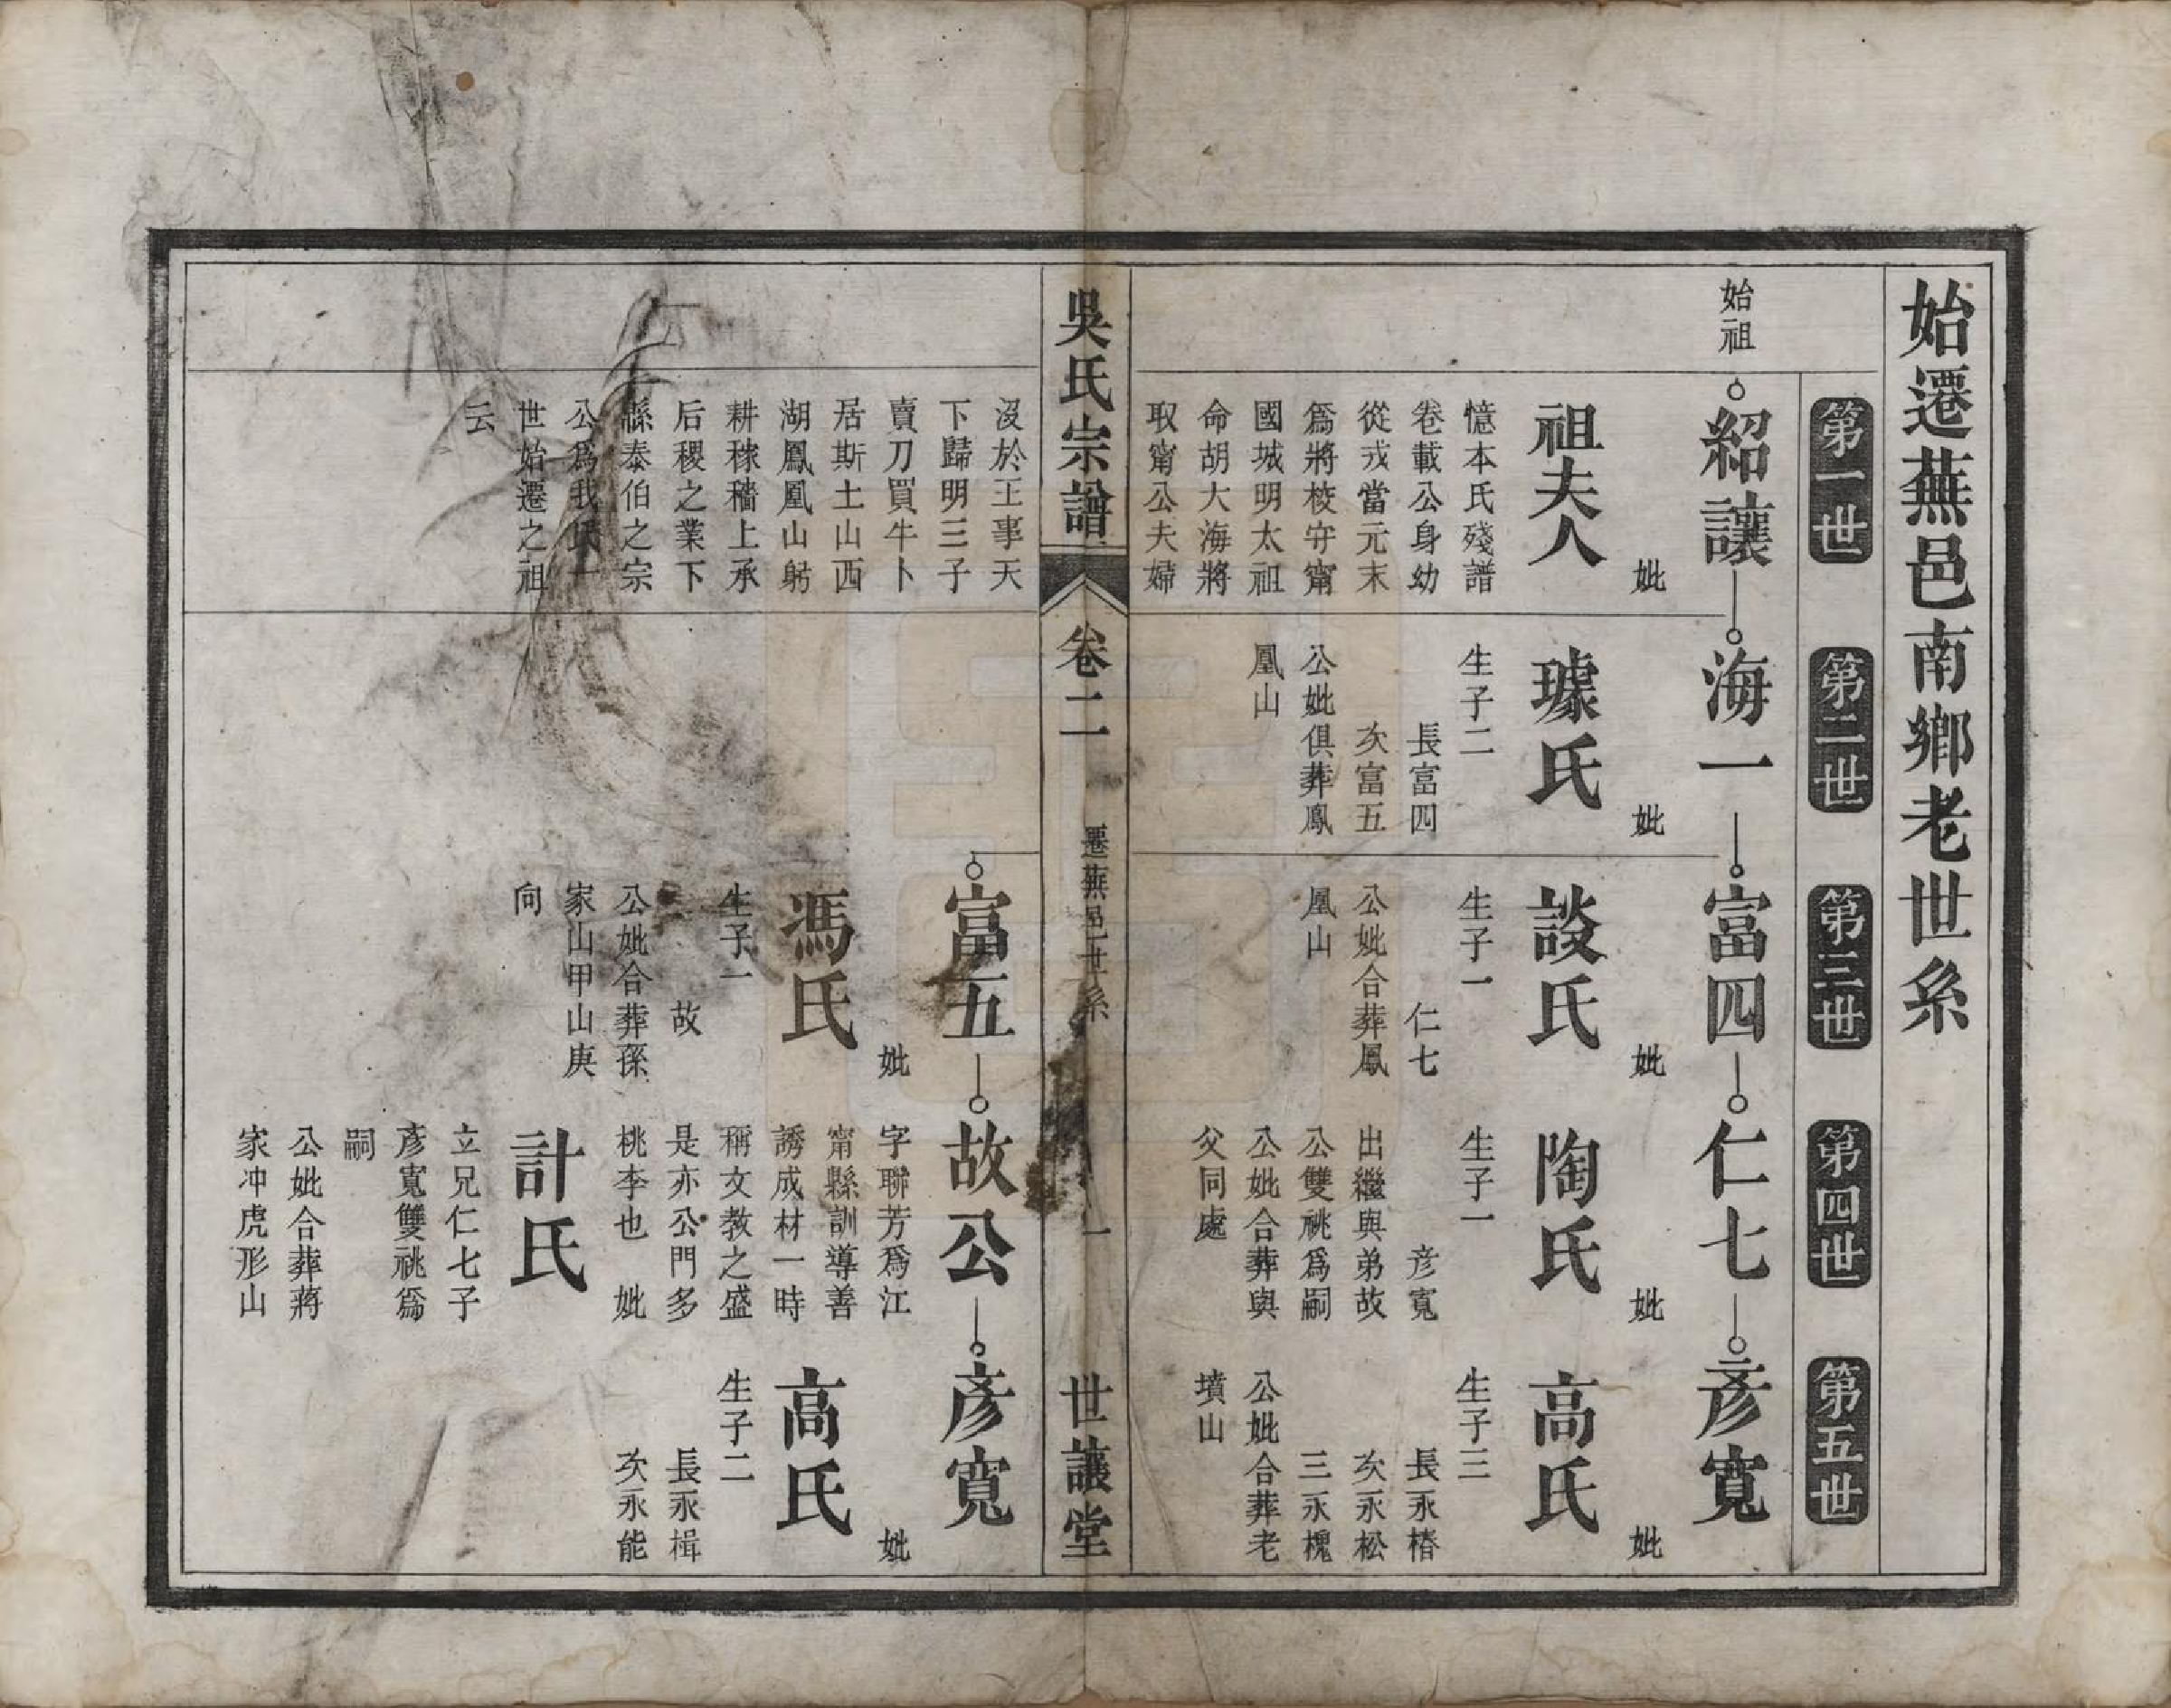 始遷蕪邑南鄉老世系
第一世
第二世
第三世
第四世
第五世
始祖
紹讓
妣
祖夫人
憶本氏殘譜
卷載公身幼
從戎當元末
爲將校守甯
國城明太祖
命胡大海將
取甯公夫婦
海一
妣
璩氏
生子二
長富四
次富五
公妣俱葬鳳
凰山
富四
妣
談氏
生子一
仁七
公妣合葬鳳
凰山
仁七
妣
陶氏
生子一
彦寬
出繼與弟故
公雙祧爲嗣
公妣合葬與
父同處
彦寬
妣
高氏
生子三
長永椿
次永松
三永槐
公妣合葬老
墳山
吳氏宗譜
卷二
遷蕪邑世系
一
世讓堂
沒於王事天
下歸明三子
賣刀買牛卜
居斯土山西
湖鳳凰山躬
耕稼穡上承
后稷之業下
緜泰伯之宗
公爲我氏一
世始遷之祖
云
富五
妣
馮氏
生子一
故
公妣合葬孫
家山甲山庚
向
故公
字聯芳爲江
甯縣訓導善
誘成材一時
稱文教之盛
是亦公門多
桃李也 妣
計氏
立兄仁七子
彦寬雙祧爲
嗣
公妣合葬蔣
家冲虎形山
彦寬
妣
高氏
生子二
長永楫
次永能